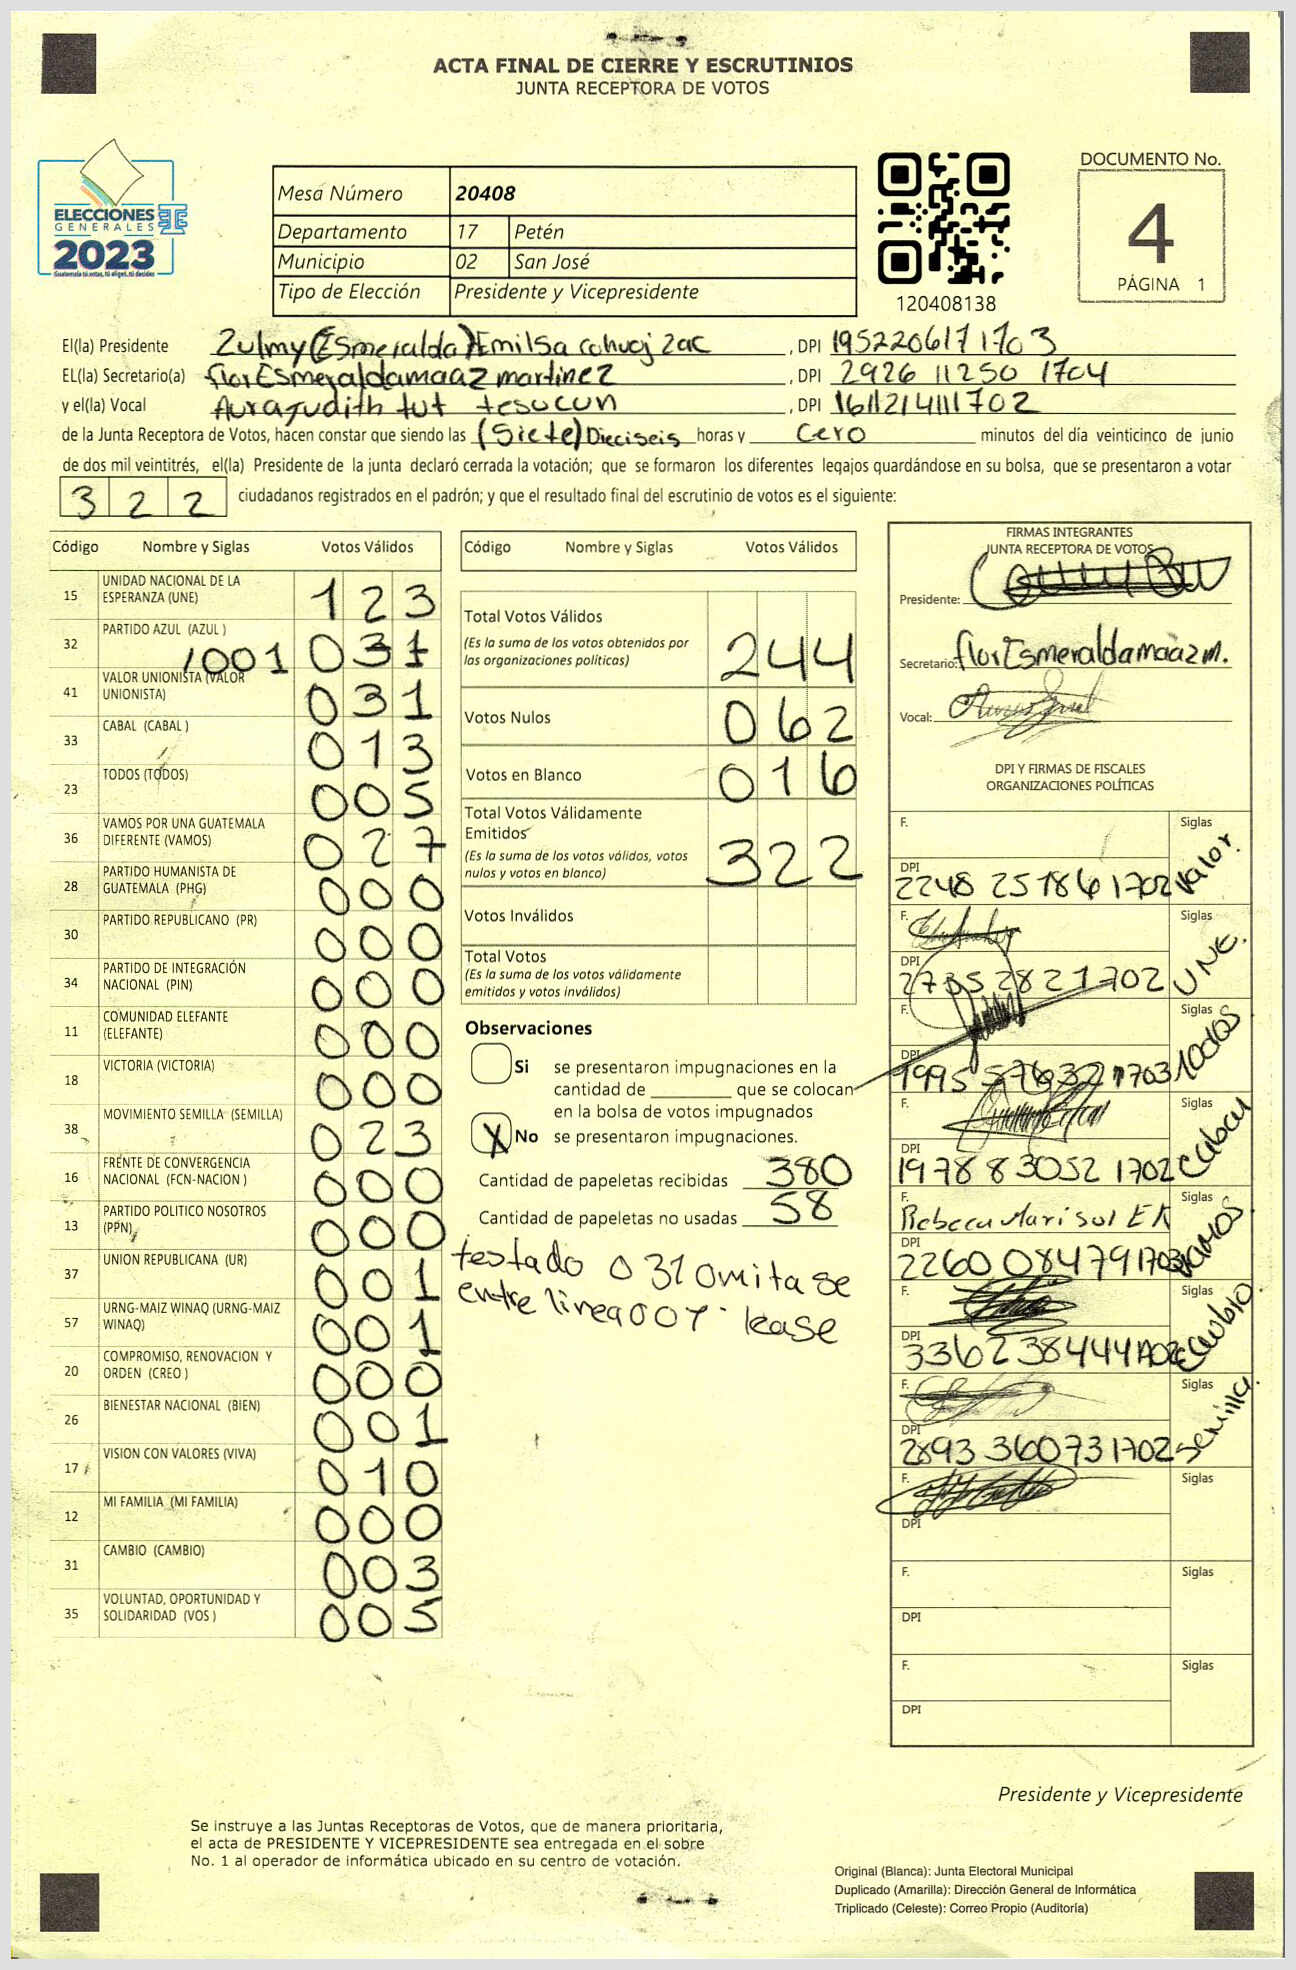 ACTA FINAL DE CIERRE Y ESCRUTINIOS
JUNTA RECEPTORA DE VOTOS
ELECCIONES
GENERALES
2023
Mesa Número 20408
Departamento 17 Petén
Municipio 02 San José
Tipo de Elección Presidente y Vicepresidente
120408138
DOCUMENTO No.
4
PÁGINA 1
El(la) Presidente Zulmy (Esmeralda) Emilsa cohuoj zac , DPI 1952206171703
EL(la) Secretario(a) flor Esmeralda maaz martinez , DPI 2926 11250 1704
y el(la) Vocal Aura Judith tut tesucun , DPI 1611214111702
de la Junta Receptora de Votos, hacen constar que siendo las (Siete) Dieciseis horas y cero minutos del día veinticinco de junio
de dos mil veintitrés, el(la) Presidente de la junta declaró cerrada la votación; que se formaron los diferentes legajos guardándose en su bolsa, que se presentaron a votar
322 ciudadanos registrados en el padrón; y que el resultado final del escrutinio de votos es el siguiente:
Código Nombre y Siglas Votos Válidos
15 UNIDAD NACIONAL DE LA ESPERANZA (UNE) 123
32 PARTIDO AZUL (AZUL ) 1001 031
41 VALOR UNIONISTA (VALOR UNIONISTA) 031
33 CABAL (CABAL ) 013
23 TODOS (TODOS) 005
36 VAMOS POR UNA GUATEMALA DIFERENTE (VAMOS) 027
28 PARTIDO HUMANISTA DE GUATEMALA (PHG) 000
30 PARTIDO REPUBLICANO (PR) 000
34 PARTIDO DE INTEGRACIÓN NACIONAL (PIN) 000
11 COMUNIDAD ELEFANTE (ELEFANTE) 000
18 VICTORIA (VICTORIA) 000
38 MOVIMIENTO SEMILLA (SEMILLA) 023
16 FRENTE DE CONVERGENCIA NACIONAL (FCN-NACION ) 000
13 PARTIDO POLITICO NOSOTROS (PPN) 000
37 UNION REPUBLICANA (UR) 001
57 URNG-MAIZ WINAQ (URNG-MAIZ WINAQ) 001
20 COMPROMISO, RENOVACION Y ORDEN (CREO ) 000
26 BIENESTAR NACIONAL (BIEN) 001
17 VISION CON VALORES (VIVA) 010
12 MI FAMILIA (MI FAMILIA) 000
31 CAMBIO (CAMBIO) 003
35 VOLUNTAD, OPORTUNIDAD Y SOLIDARIDAD (VOS ) 005
Código Nombre y Siglas Votos Válidos
Total Votos Válidos 244
(Es la suma de los votos obtenidos por
las organizaciones políticas)
Votos Nulos 062
Votos en Blanco 016
Total Votos Válidamente
Emitidos 322
(Es la suma de los votos válidos, votos
nulos y votos en blanco)
Votos Inválidos
Total Votos
(Es la suma de los votos válidamente
emitidos y votos inválidos)
Observaciones
Si se presentaron impugnaciones en la
cantidad de ________ que se colocan
en la bolsa de votos impugnados
X No se presentaron impugnaciones.
Cantidad de papeletas recibidas 380
Cantidad de papeletas no usadas 58
testado 0 31 omitase
entre linea 001 lease
FIRMAS INTEGRANTES
JUNTA RECEPTORA DE VOTOS
Presidente:
Secretario: flor Esmeralda maaz m.
Vocal:
DPI Y FIRMAS DE FISCALES
ORGANIZACIONES POLÍTICAS
F. Siglas Valor.
DPI 2248 25186 1702
F. Siglas UNE.
DPI 2735 2821702
F. Siglas TODOS
DPI 1995 57632 1703
F. Siglas Cabal
DPI 1978 83052 1702
F. Rebeca Marisol EK Siglas VAMOS.
DPI 2260 08479 1703
F. Siglas Cambio.
DPI 3362384441702
F. Siglas Semilla.
DPI 2893 360731702
F. Siglas
DPI
F. Siglas
DPI
F. Siglas
DPI
Presidente y Vicepresidente
Se instruye a las Juntas Receptoras de Votos, que de manera prioritaria,
el acta de PRESIDENTE Y VICEPRESIDENTE sea entregada en el sobre
No. 1 al operador de informática ubicado en su centro de votación.
Original (Blanca): Junta Electoral Municipal
Duplicado (Amarilla): Dirección General de Informática
Triplicado (Celeste): Correo Propio (Auditoría)